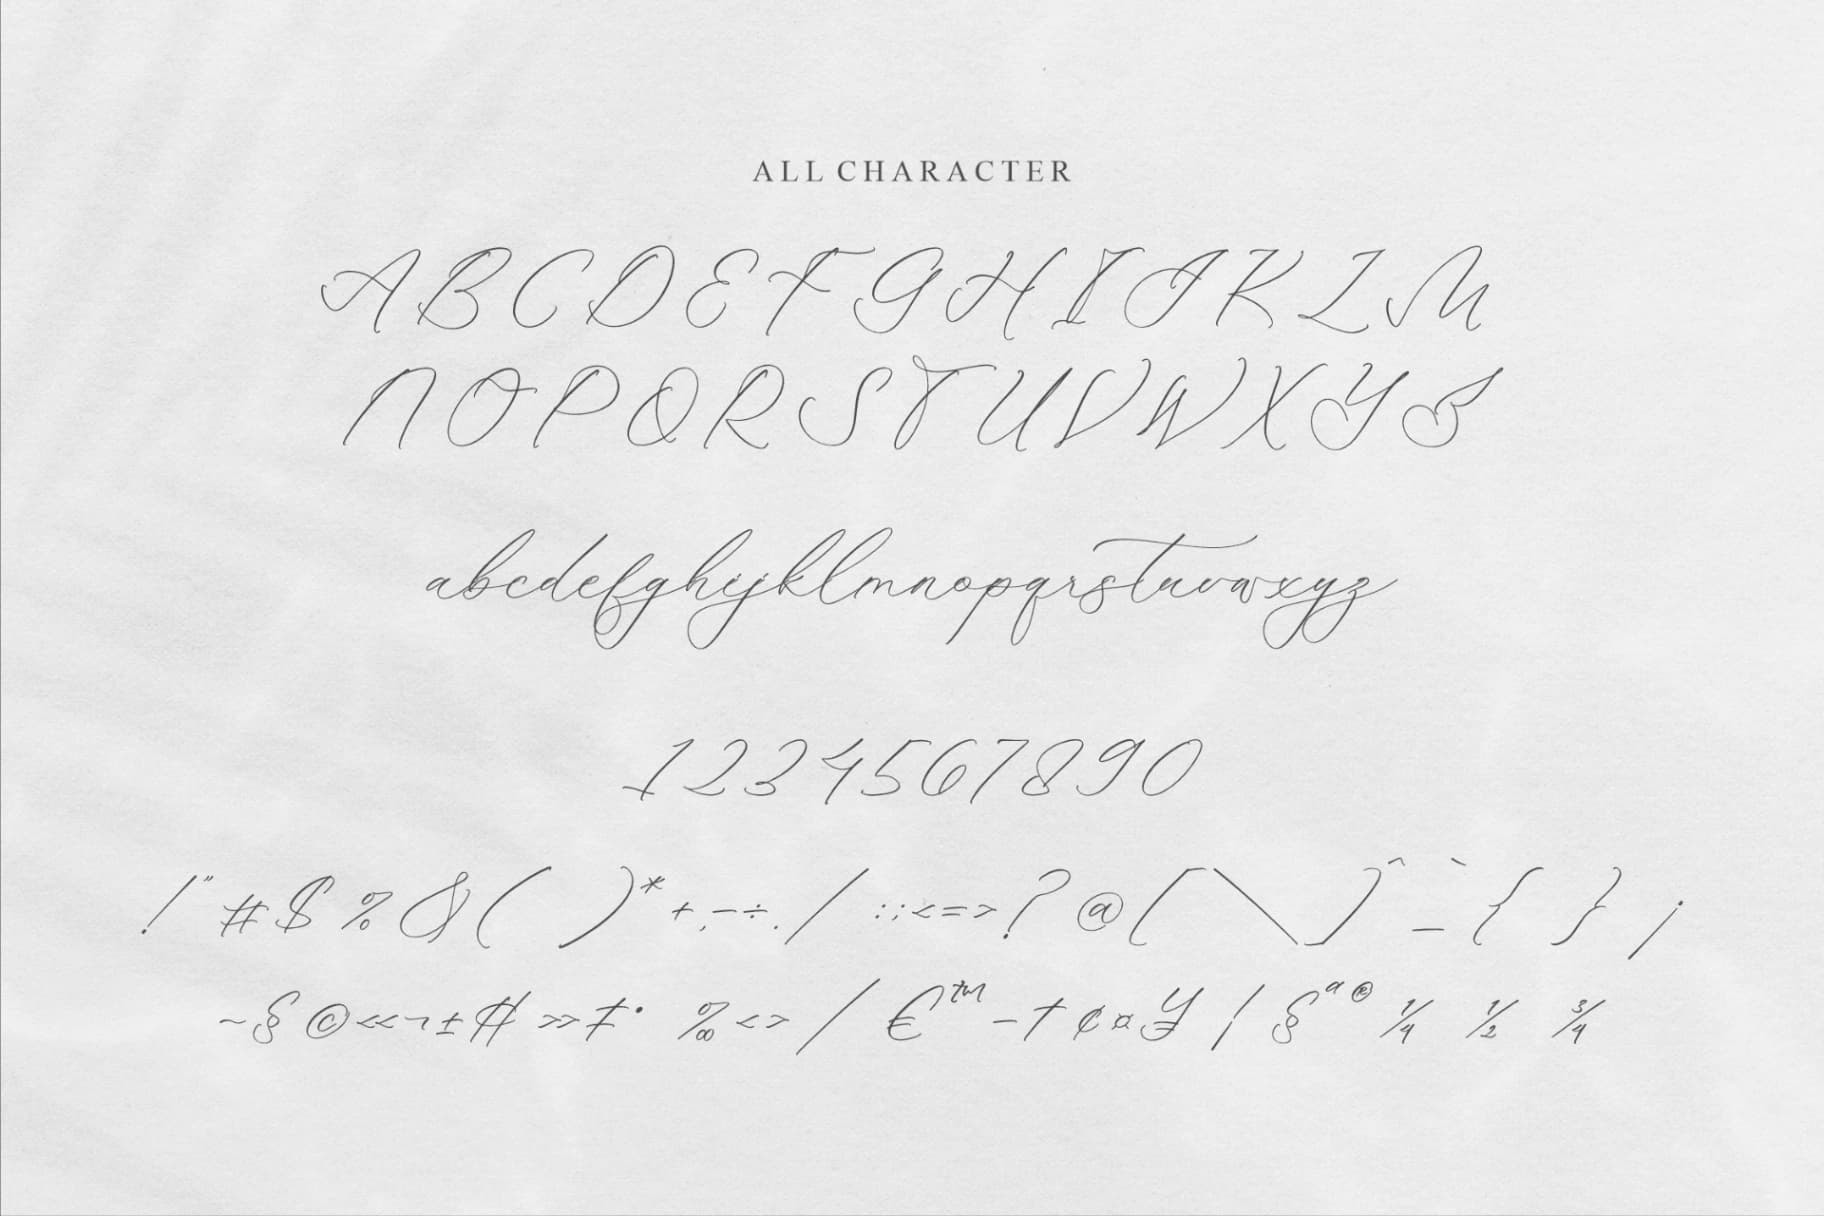 ALL CHARACTER
ABCDEFGHIJKLM
NOPQRSTUVWXYZ
abcdefghijklmnopqrstuvwxyz
1234567890
!"#$%&()*+,-÷./:;<=>?@[\]^_`{}¡
~§©««¬±#»‡·‰<>/€™–†¢¤¥¦§ª®¼½¾